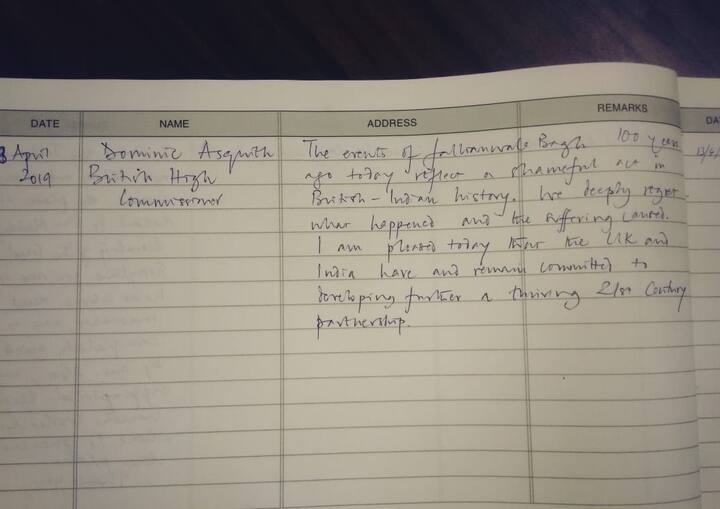 DATE NAME ADDRESS REMARKS DA
3 April Dominic Asquith The events of Jallianwala Bagh 100 years
2019 British High ago today reflect a shameful act in
Commissioner British-Indian history. We deeply regret
what happened and the suffering caused.
I am pleased today that the UK and
India have and remain committed to
developing further a thriving 21st Century
partnership.